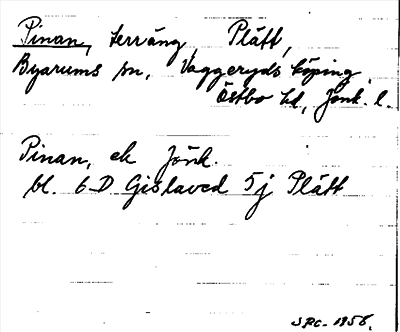 Pinan, terräng, Plätt,
Byarums sn, Vaggeryds köping,
Östbo hd, Jönk. l.
Pinan, ek Jönk.
bl. 6 D Gislaved 5 j Plätt
SRC. 1956.